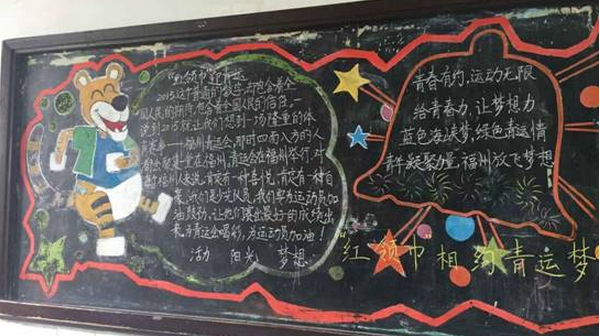 "红领巾迎青运
2015这个普通的数字,却包含着全
国人民的期待,包含着全国人民的信任。一
说到2015就让我们想到一场隆重的体
育赛事——福州青运会,那时四面八方的人
都会欢聚一堂在福州,青运会在福州举行,对
福州人来说,有一种喜悦,有一种自
豪,我们是少先队员,我们要为运动员加
油鼓劲,让他们赛出最好的成绩出
来,为青运会喝彩,为运动员加油!
活力 阳光 梦想
青春有约,运动无限
给青春力,让梦想力
蓝色海峡梦,绿色青运情
青年凝聚力量,福州放飞梦想
红领巾相约青运梦